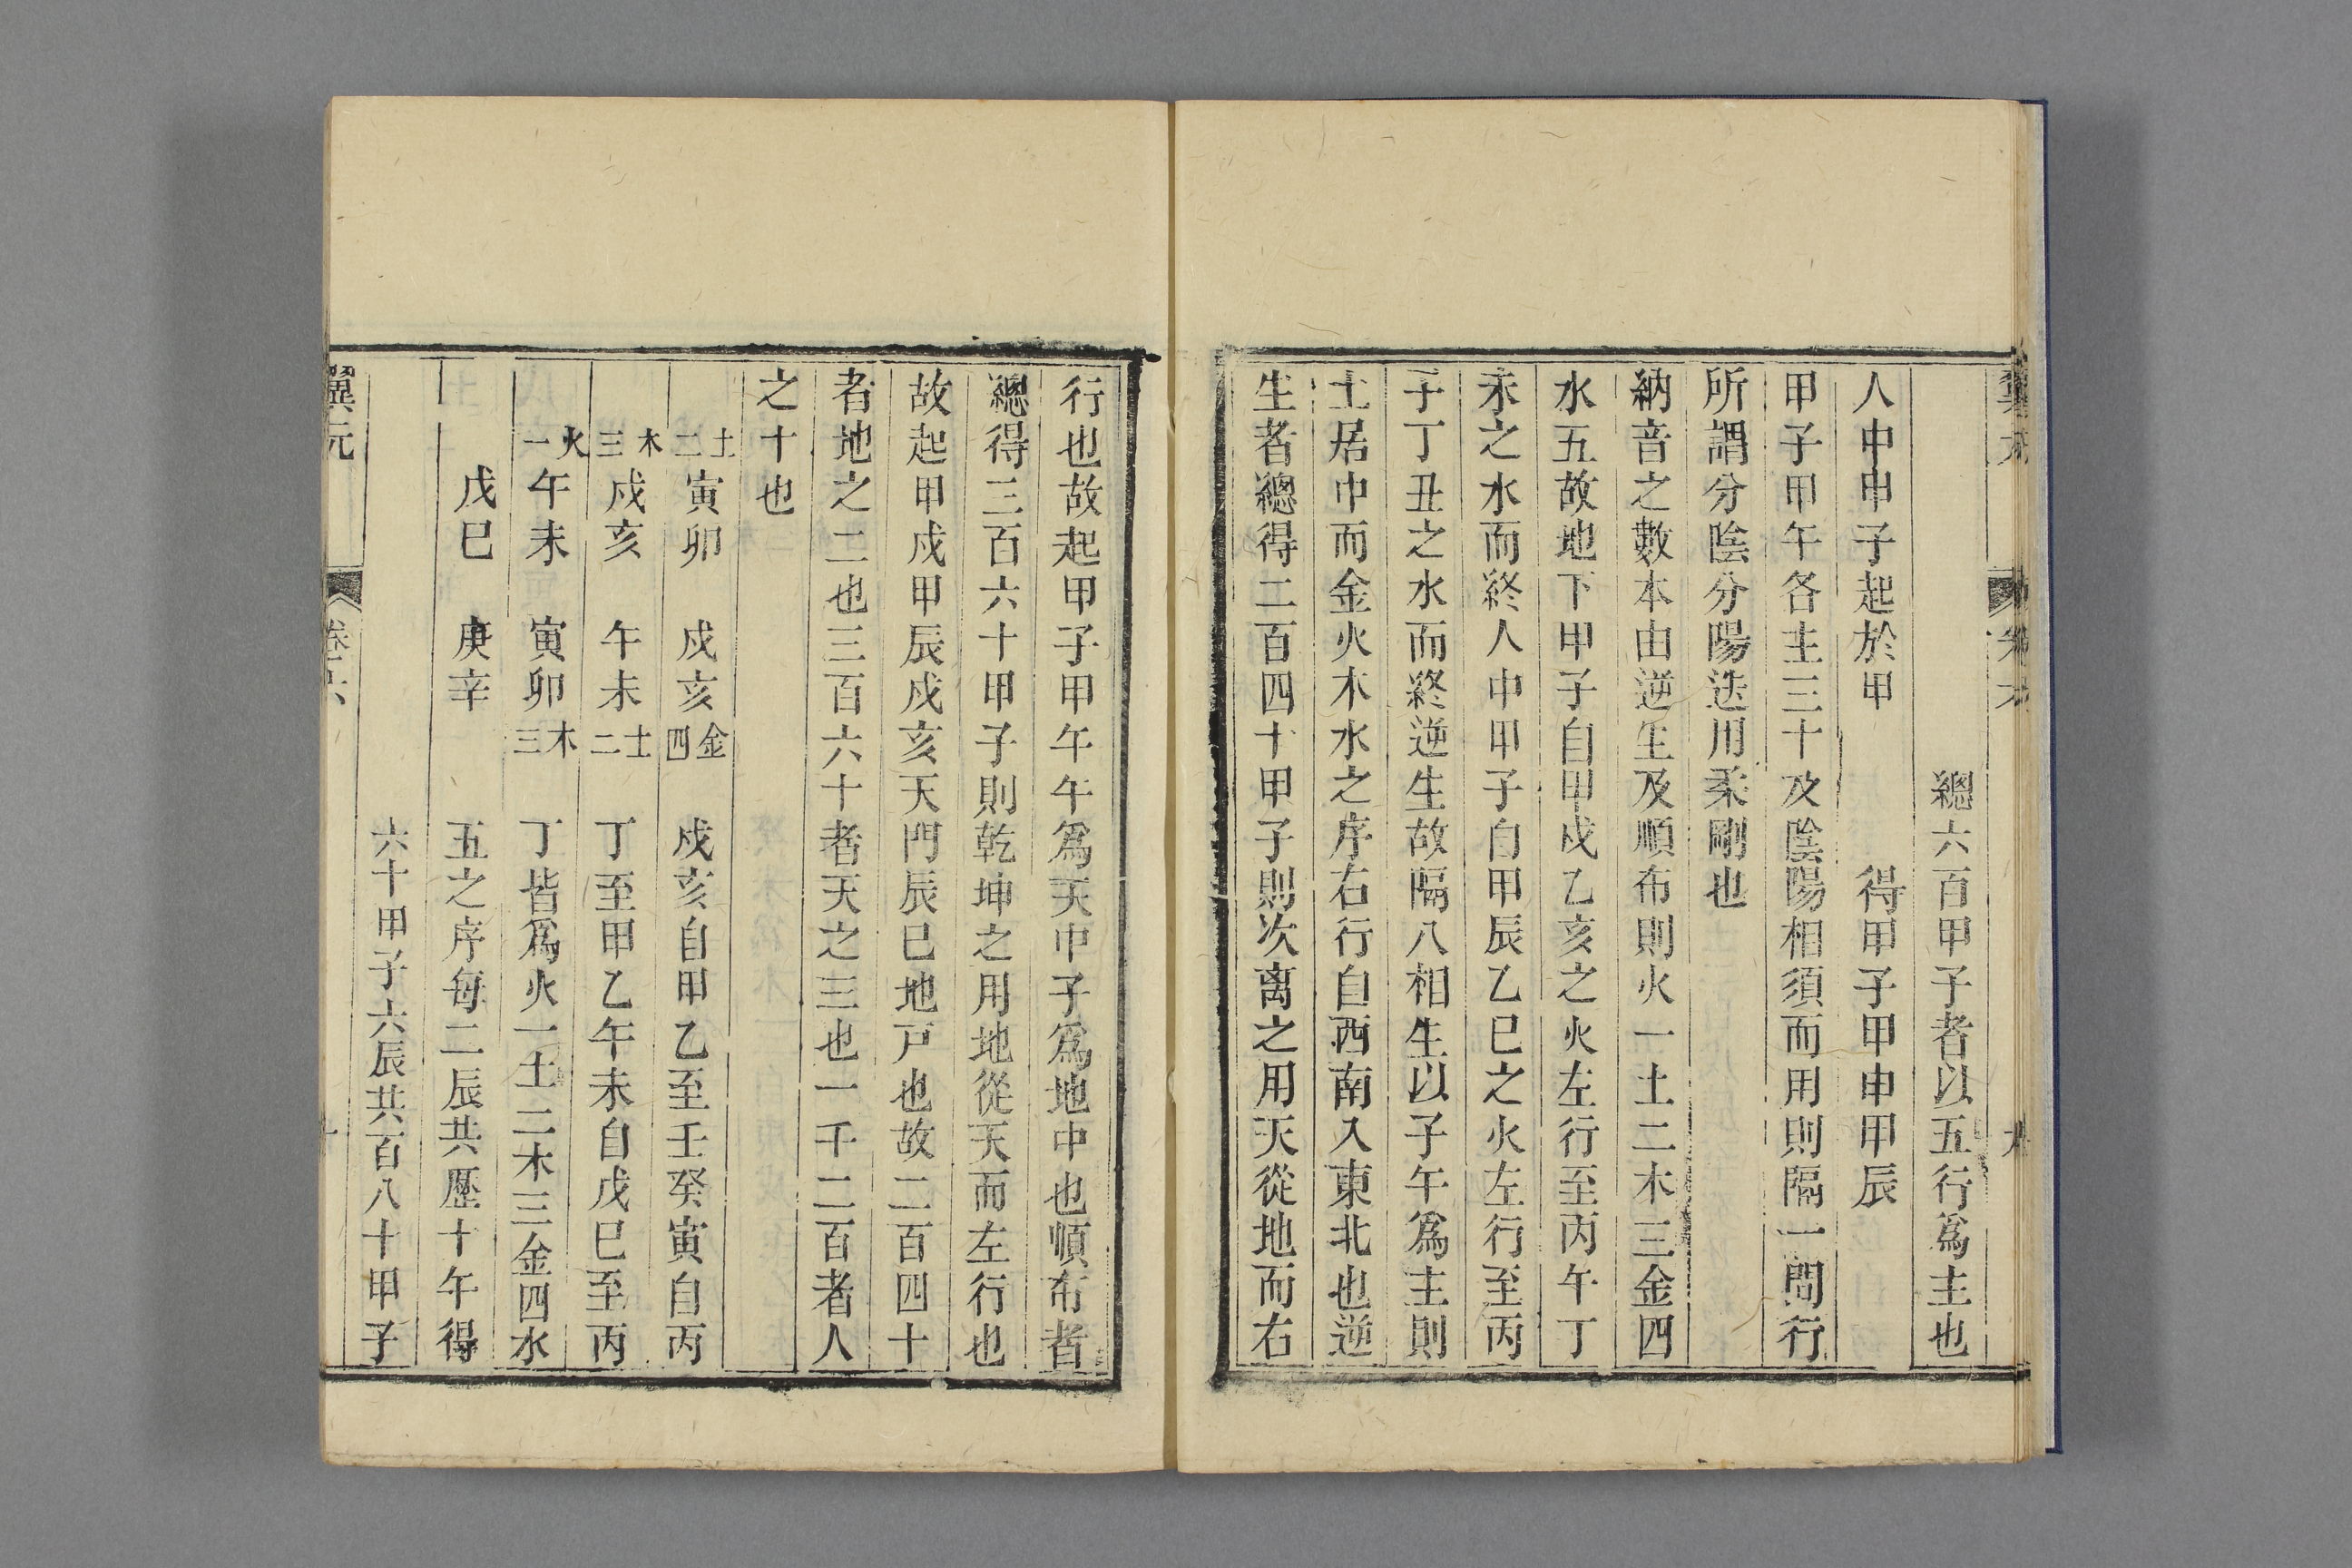 總六百甲子者以五行爲主也
人中甲子起於甲　得甲子甲申甲辰
甲子甲午各主三十及陰陽相須而用則隔一間行
所謂分陰分陽迭用柔剛也
納音之數本由逆生及順布則火一土二木三金四
水五故地下甲子自甲戍乙亥之火左行至丙午丁
未之水而終人中甲子自甲辰乙巳之火左行至丙
子丁丑之水而終逆生故隔八相生以子午爲主則
土居中而金火木水之序右行自西南入東北也逆
生者總得二百四十甲子則次离之用天從地而右
行也故起甲子甲午午爲天中子爲地中也順布者
總得三百六十甲子則乾坤之用地從天而左行也
故起甲戍甲辰戍亥天門辰巳地戸也故二百四十
者地之二也三百六十者天之三也一千二百者人
之十也
土二　寅卯　戍亥　金四　戍亥自甲乙至壬癸寅自丙
木三　戍亥　午未　土二　丁至甲乙午未自戊巳至丙
火一　午未　寅卯　木三　丁皆爲火一土二木三金四水
戊巳　庚辛　五之序每二辰共歷十午得
六十甲子六辰共百八十甲子
翼元　卷六